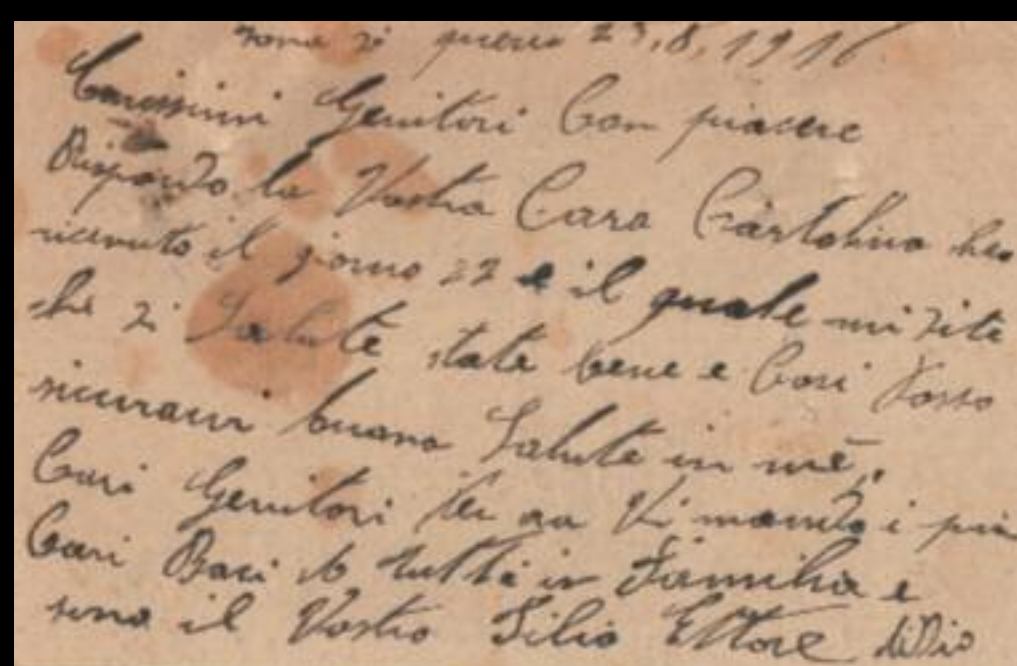 zona di guerra 23.8.1916
Carissimi Genitori Con piacere
Rispondo la Vostra Cara Cartolina heo
ricevuto il giorno 22 e il quale mi dite
che di Salute state bene e Cosi Posso
sicurarvi buona Salute in mè,
Cari Genitori Per ora Vi mando i più
Cari Baci a tutti in Familia e
sono il Vostro Filio Ettore